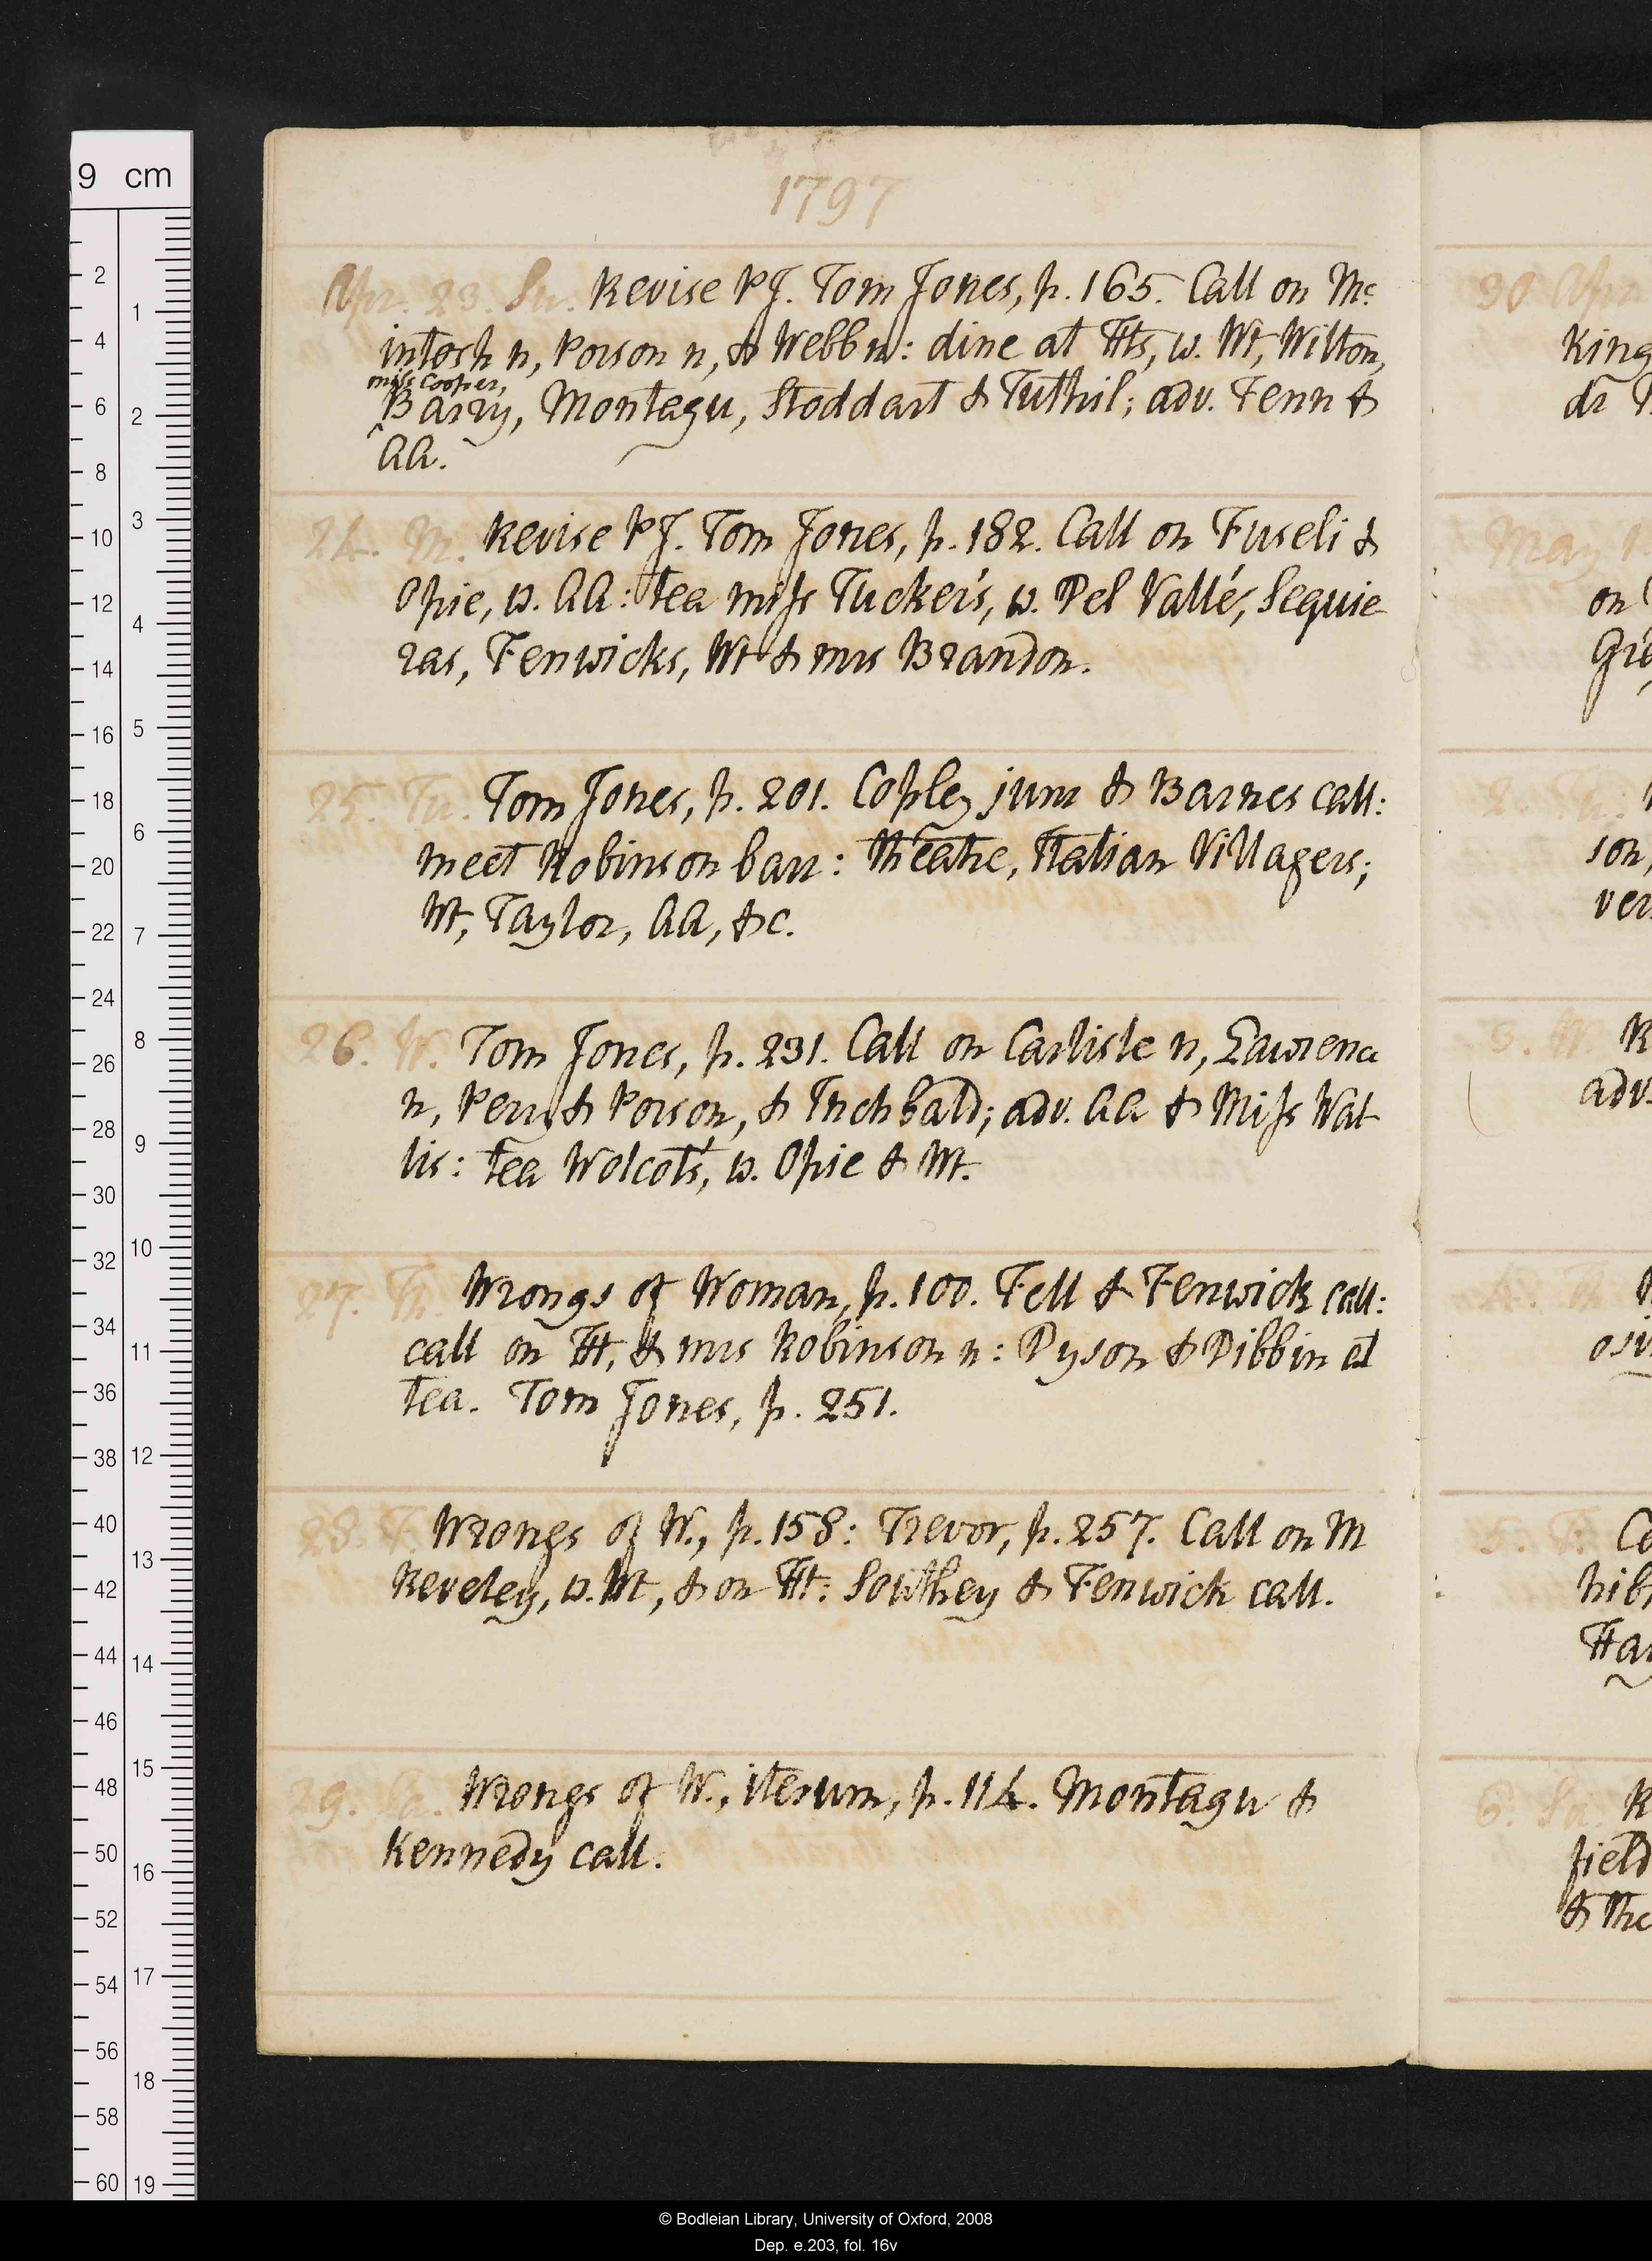 1797
Apr. 23. Su. Revise PJ. Tom Jones, p. 165. Call on Mc
intosh n, Porson n, & Webb n: dine at Hts, w. Wt, Wilton,
miss Cooper,
^Barry, Montagu, Stoddart & Tuthil; adv. Fenn &
AA.
24. M. Revise PJ. Tom Jones, p. 182. Call on Fuseli &
Opie, w. AA: tea miss Tucker's, w. Del Vallé, Sequie
ras, Fenwicks, Wt & mrs Brandon.
25. Tu. Tom Jones, p. 201. Copley junr & Barnes call:
meet Robinson barr: theatre, Italian Villagers;
Wt, Taylor, AA, &c.
26. W. Tom Jones, p. 231. Call on Carlisle n, Lawrence
n, Perry & Porson, & Inchbald; adv. AA & Miss Wat
lis: tea Wolcot's, w. Opie & Wt.
27. Th. Wrongs of Woman, p. 100. Fell & Fenwick call:
call on Ht, & mrs Robinson n: Dyson & Dibbin at
tea. Tom Jones, p. 251.
28. F. Wrongs of W., p. 158: Trevor, p. 257. Call on M
Reveley, w. Wt, & on Ht: Southey & Fenwick call.
29. Sa. Wrongs of W., iterum, p. 114. Montagu &
Kennedy call.
30 Apr
King
dr
May 1
on
Gre
2. Tu.
son,
ver
3. W. R
adv.
4. Th
5. F. Co
hib
Har
6. Sa. R
field
& The
9 cm
2
4
6
8
10
12
14
16
18
20
22
24
26
28
30
32
34
36
38
40
42
44
46
48
50
52
54
56
58
60
1
2
3
4
5
6
7
8
9
10
11
12
13
14
15
16
17
18
19
© Bodleian Library, University of Oxford, 2008
Dep. e.203, fol. 16v